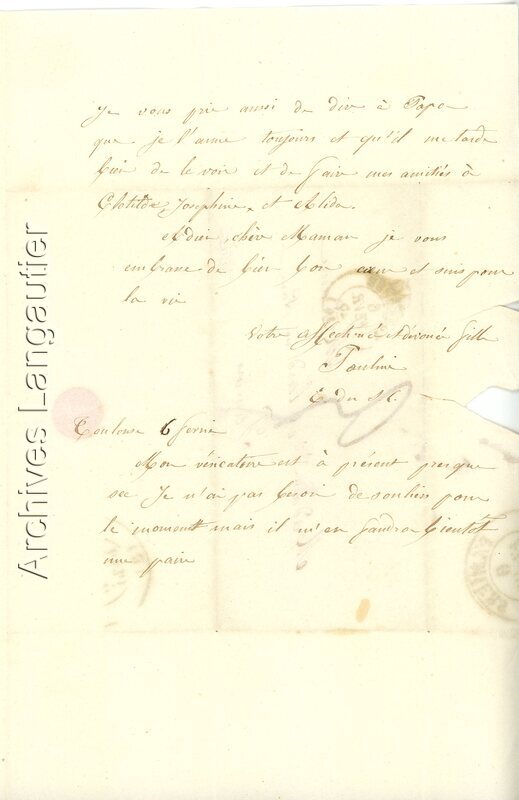 Je vous prie aussi de dire à Papa
que je l'aime toujours et qu'il me tarde
bien de le voir et de faire mes amitiés à
Clotilde Josephine et Alida.
Adieu, chère Maman je vous
embrasse de bien bon cœur et suis pour
la vie
Votre affectionné et dévouée fille
Pauline
E du S. C.
Toulouse 6 fevrier
Mon vesicatoire est à présent presque
sec Je n'ai pas besoin de souliers pour
le moment mais il m'en faudra bientôt
une paire
Archives Langautier